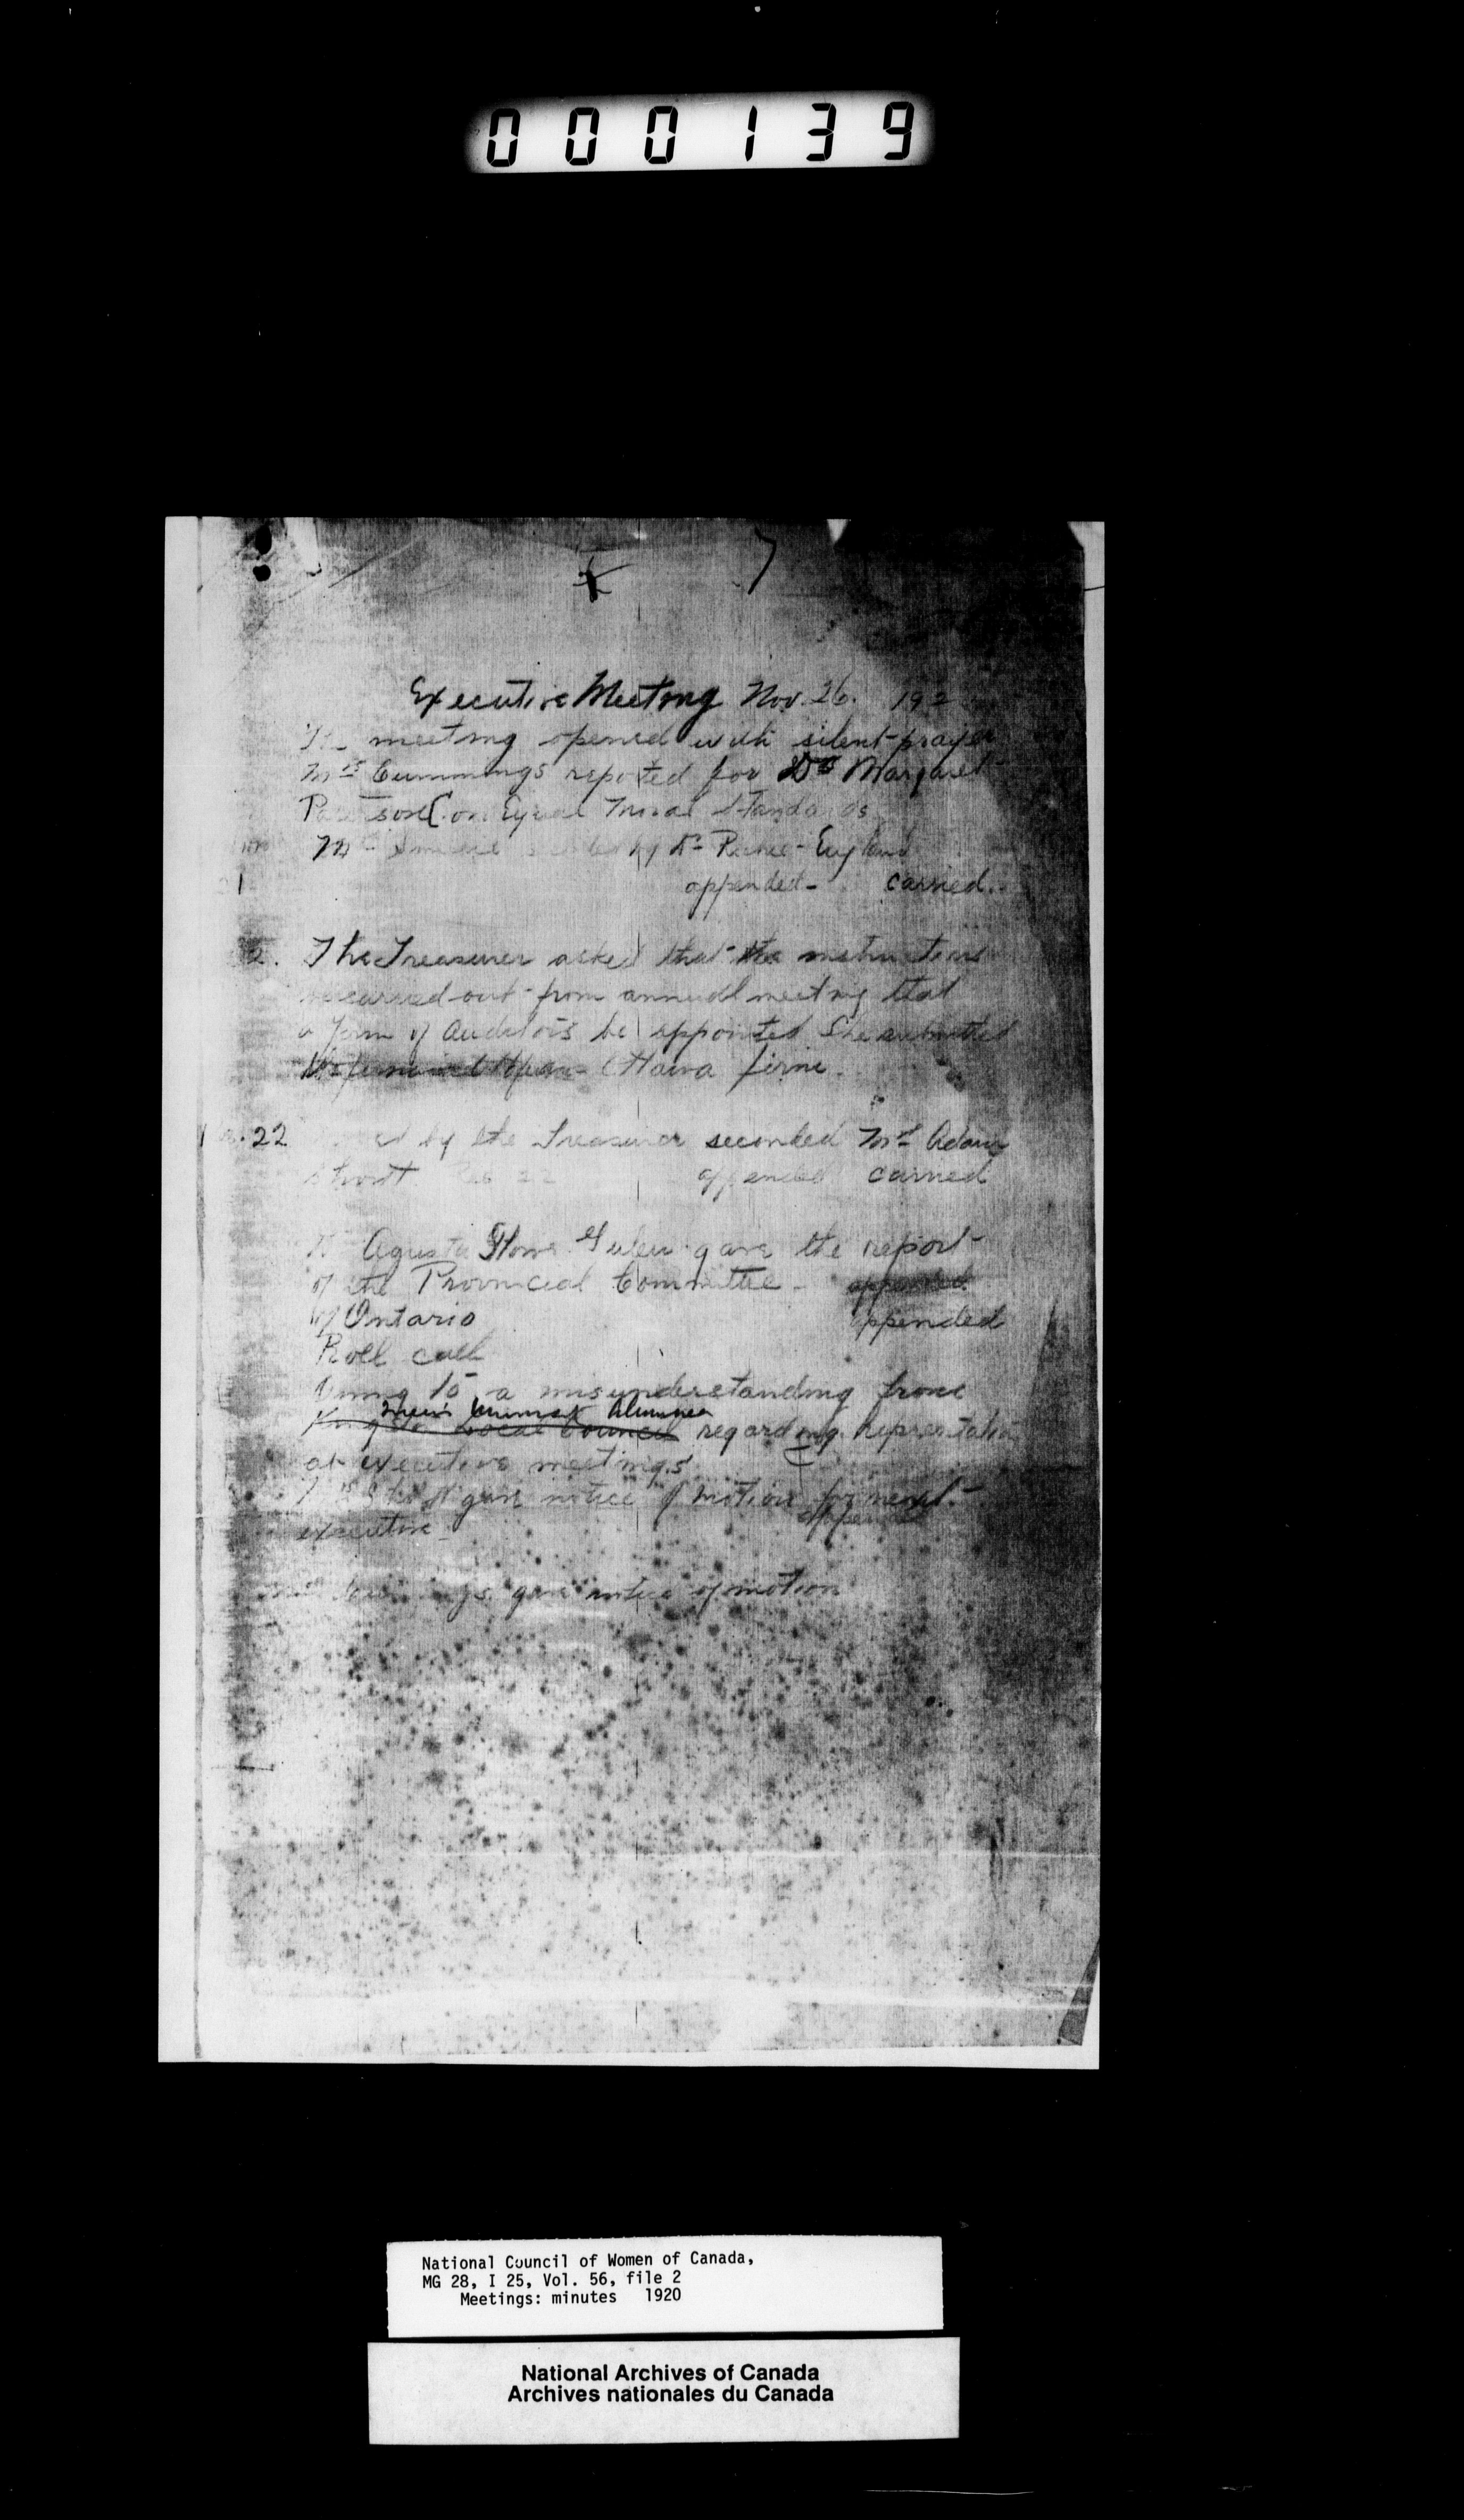 000139
7
Executive Meeting Nov. 26. 192
meeting opened with silent prayer
Mrs Cummings reported for Dr Margaret
Patterson on Equal Moral Standards
by Dr Ritchie-England
1 appended - carried.
2. The Treasurer asked that the instructions
carried out from annual meeting that
a form of Auditors be appointed She submitted
Ottawa firm.
22 by the Treasurer seconded Mrs Adam
Short 22 appended carried
Dr Agusta Stowe Gullen gave the report
of the Provincial Committee - appended
of Ontario appended
Roll call
Owing to a misunderstanding from
Alumnae
Local Council regarding representation
at executive meetings
gave notice of motion for next
executive appended
gave notice of motion
National Council of Women of Canada,
MG 28, I 25, Vol. 56, file 2
Meetings: minutes 1920
National Archives of Canada
Archives nationales du Canada